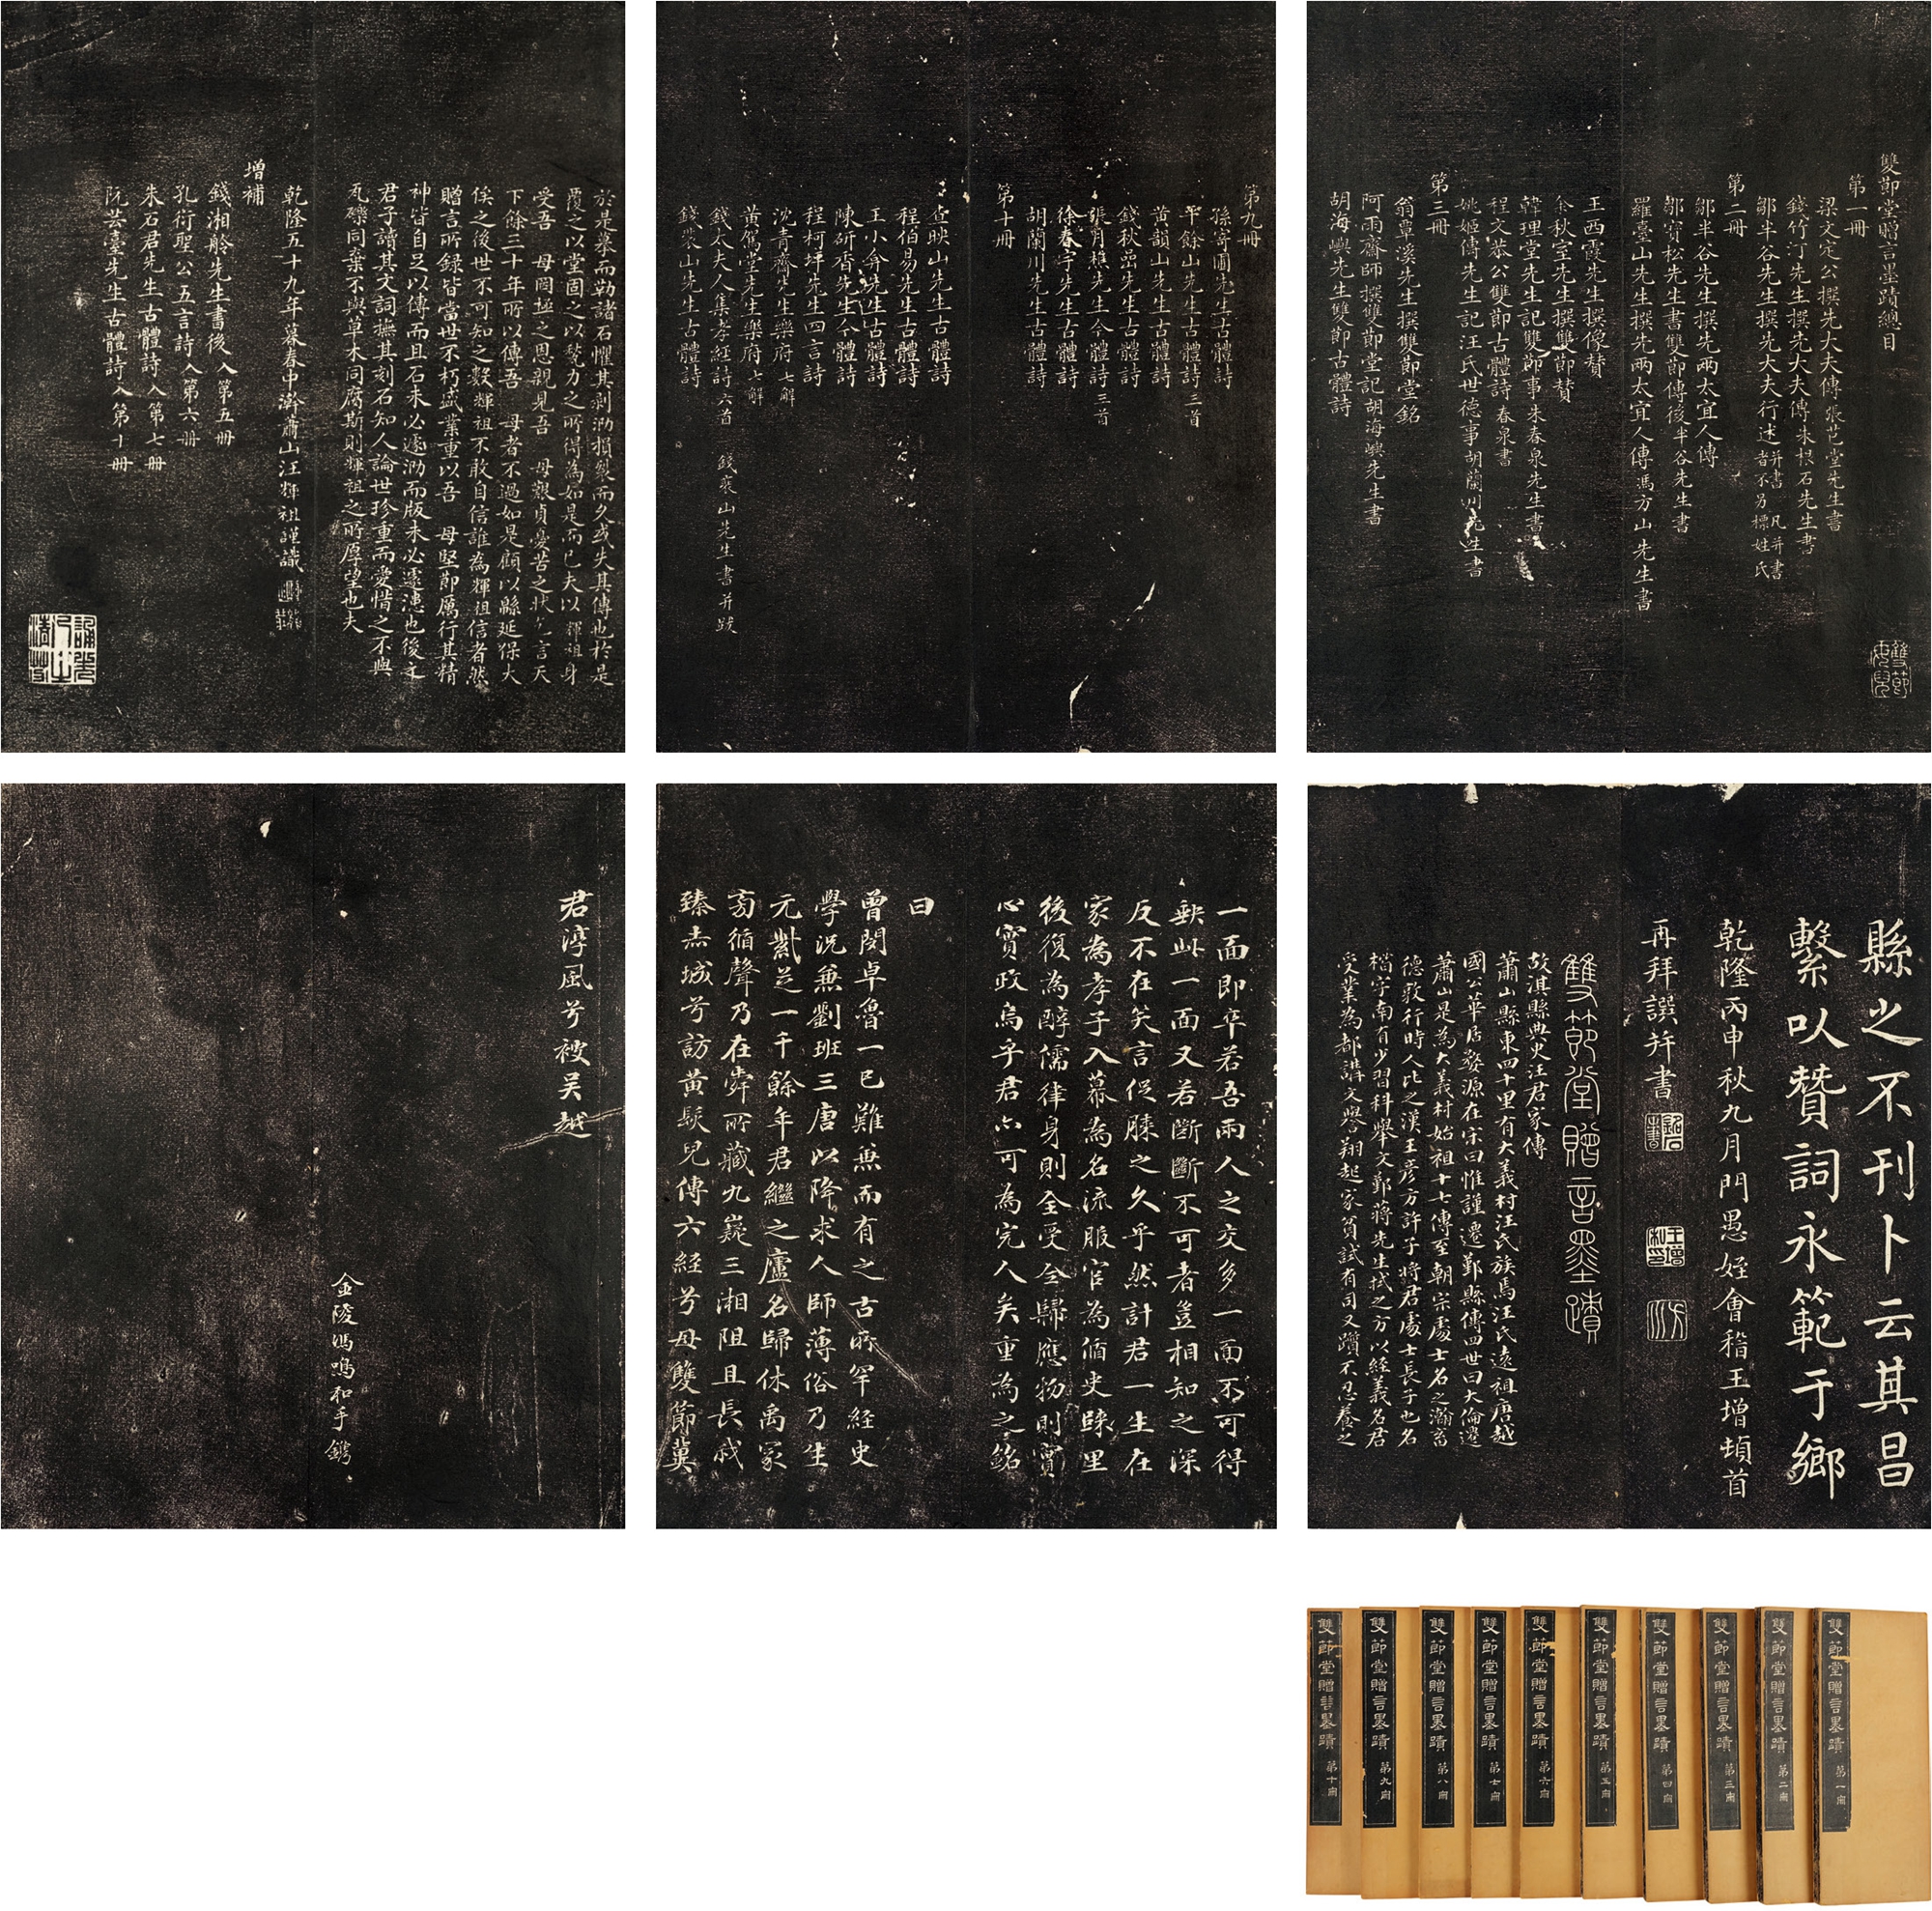 雙節堂贈言墨蹟總目
第一冊
梁文定公撰先大夫傳 張芑堂先生書
錢竹汀先生撰先大夫傳 朱根石先生書
鄒半谷先生撰先大夫行述 并書 凡并書者不另標姓氏
第二冊
鄒半谷先生撰先兩太宜人傳
鄒寶松先生書雙節傳後 半谷先生書
羅臺山先生撰先兩太宜人傳 馮方山先生書
王西霞先生撰像贊
余秋室先生撰雙節贊
韓理堂先生記雙節事 朱春泉先生書
程文恭公雙節古體詩 春泉書
姚姬傳先生記汪氏世德事 胡蘭川先生書
第三冊
翁覃溪先生撰雙節堂銘
阿雨齋師撰雙節堂記 胡海嶼先生書
胡海嶼先生雙節古體詩
雙節母兒
第九冊
孫寄圃先生古體詩
平餘山先生古體詩 三首
黃韻山先生古體詩
錢秋嵒先生古體詩
張月樵先生今體詩 三首
徐春宇先生古體詩
胡蘭川先生古體詩
第十冊
查映山先生古體詩
程伯易先生古體詩
王小弇先生古體詩
陳研香先生今體詩
程柯坪先生四言詩
沈青齋先生樂府 七解
黃傌堂先生樂府 七解
錢太夫人集孝經詩 六首 錢裴山先生書并跋
錢裴山先生古體詩
於是摹而勒諸石懼其剝泐損裂而久或失其傳也於是
覆之以堂固之以甃力之所得為如是而已夫以輝祖身
受吾 母罔極之恩親見吾 母艱貞憂苦之狀乞言天
下餘三十年所以傳吾 母者不過如是顧以縣延保大
俟之後世不可知之數輝祖不敢自信誰為輝祖信者然
贈言所錄皆當世不朽盛業重以吾 母堅節厲行其精
神皆自足以傳而且石未必遽泐而版未必遽漶也後之
君子讀其文詞撫其刻石知人論世珍重而愛惜之不與
瓦礫同棄不與草木同腐斯則輝祖之所厚望也夫
乾隆五十九年暮春中澣蕭山汪輝祖謹識
增補
錢湘舲先生書後 入第五冊
孔衍聖公五言詩 入第六冊
朱石君先生古體詩 入第七冊
阮芸臺先生古體詩 入第十冊
縣之不刊卜云其昌
繫以贊詞永範于鄉
乾隆丙申秋九月門愚姪會稽王增頓首
再拜譔并書
雙節堂贈言墨蹟
故淇縣典史汪君家傳
蕭山縣東四十里有大義村汪氏族焉汪氏遠祖唐越
國公華居婺源在宋曰惟謹遷鄞縣傳四世曰大倫遷
蕭山是為大義村始祖十七傳至朝宗處士名之瀚畜
德敦行時人比之漢王彥方許子將君處士長子也名
楷字南有少習科舉文鄞將先生拭之方以經義名君
受業為都講文譽翔起家貧試有司又躓不忍養之
一面即卒若吾兩人之交多一面不可得
缺此一面又若斷斷不可者豈相知之深
反不在笑言促膝之久乎然計君一生在
家為孝子入幕為名流服官為循吏歸里
後復為醇儒律身則全受全歸應物則實
心實政烏乎君亦可為完人矣重為之銘
曰
曾閔卓魯一已難兼而有之古所罕經史
學況兼劉班三唐以降求人師薄俗乃生
元紫芝一千餘年君繼之廬名歸休禹冢
旁循聲乃在舜所藏九嶷三湘阻且長我
臻赤城兮訪黃髮兒傳六經兮母雙節冀
君淳風兮被吴越
金陵馮鳴和手鐫
雙節堂贈言墨蹟 第一冊
雙節堂贈言墨蹟 第二冊
雙節堂贈言墨蹟 第三冊
雙節堂贈言墨蹟 第四冊
雙節堂贈言墨蹟 第五冊
雙節堂贈言墨蹟 第六冊
雙節堂贈言墨蹟 第七冊
雙節堂贈言墨蹟 第八冊
雙節堂贈言墨蹟 第九冊
雙節堂贈言墨蹟 第十冊